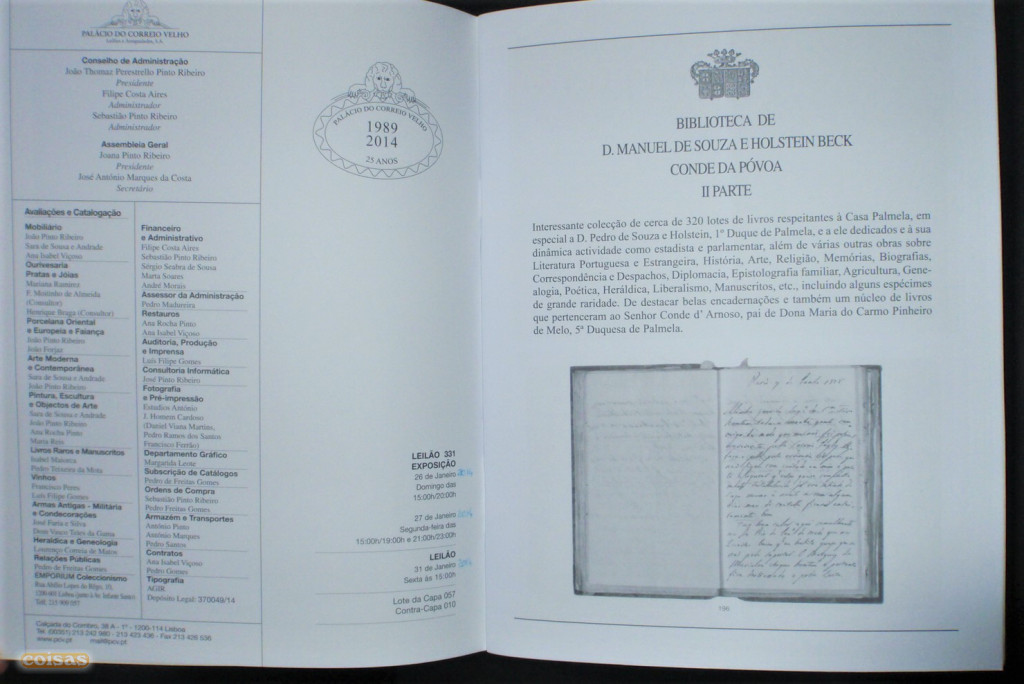 PALÁCIO DO CORREIO VELHO
Leilões e Antiguidades, S.A.
Conselho de Administração
João Thomaz Perestrello Pinto Ribeiro
Presidente
Filipe Costa Aires
Administrador
Sebastião Pinto Ribeiro
Administrador
Assembleia Geral
Joana Pinto Ribeiro
Presidente
José António Marques da Costa
Secretário
Avaliações e Catalogação
Mobiliário
João Pinto Ribeiro
Sara de Sousa e Andrade
Ana Isabel Viçoso
Ourivesaria
Pratas e Jóias
Mariana Ramirez
F. Moitinho de Almeida
(Consultor)
Henrique Braga (Consultor)
Porcelana Oriental
e Europeia e Faiança
João Pinto Ribeiro
João Forjaz
Arte Moderna
e Contemporânea
Sara de Sousa e Andrade
João Pinto Ribeiro
Pintura, Escultura
e Objectos de Arte
Sara de Sousa e Andrade
João Pinto Ribeiro
Ana Rocha Pinto
Maria Reis
Livros Raros e Manuscritos
Isabel Maiorca
Pedro Teixeira da Mota
Vinhos
Francisco Peres
Luís Filipe Gomes
Armas Antigas - Militária
e Condecorações
José Faria e Silva
Dom Vasco Teles da Gama
Heráldica e Geneologia
Lourenço Correia de Matos
Relações Públicas
Pedro de Freitas Gomes
EMPORIUM Coleccionismo
Financeiro
e Administrativo
Filipe Costa Aires
Sebastião Pinto Ribeiro
Sérgio Seabra de Sousa
Marta Soares
André Morais
Assessor da Administração
Pedro Madureira
Restauros
Ana Rocha Pinto
Ana Isabel Viçoso
Auditoria, Produção
e Imprensa
Luís Filipe Gomes
Consultoria Informática
José Pinto Ribeiro
Fotografia
e Pré-impressão
Estúdios António
J. Homem Cardoso
(Daniel Viana Martins,
Pedro Ramos dos Santos
Francisco Ferrão)
Departamento Gráfico
Margarida Leote
Subscrição de Catálogos
Pedro de Freitas Gomes
Ordens de Compra
Sebastião Pinto Ribeiro
Pedro Freitas Gomes
Armazém e Transportes
António Pinto
António Marques
Pedro Santos
Contratos
Ana Isabel Viçoso
Pedro Gomes
Tipografia
AGIR
Depósito Legal: 370049/14
Calçada do Combro, 38 A - 1º - 1200-114 Lisboa
www.pcv.pt mail@pcv.pt
coisas
PALÁCIO DO CORREIO VELHO
1989
2014
25 ANOS
LEILÃO 331
EXPOSIÇÃO
26 de Janeiro
Domingo das
15:00h/20:00h
27 de Janeiro
Segunda-feira das
15:00h/19:00h e 21:00h/23:00h
LEILÃO
31 de Janeiro
Sexta às 15:00h
Lote da Capa 057
Contra-Capa 010
BIBLIOTECA DE
D. MANUEL DE SOUZA E HOLSTEIN BECK
CONDE DA PÓVOA
II PARTE
Interessante colecção de cerca de 320 lotes de livros respeitantes à Casa Palmela, em
especial a D. Pedro de Souza e Holstein, 1º Duque de Palmela, e a ele dedicados e à sua
dinâmica actividade como estadista e parlamentar, além de várias outras obras sobre
Literatura Portuguesa e Estrangeira, História, Arte, Religião, Memórias, Biografias,
Correspondência e Despachos, Diplomacia, Epistolografia familiar, Agricultura, Gene-
alogia, Poética, Heráldica, Liberalismo, Manuscritos, etc., incluindo alguns espécimes
de grande raridade. De destacar belas encadernações e também um núcleo de livros
que pertenceram ao Senhor Conde d' Arnoso, pai de Dona Maria do Carmo Pinheiro
de Melo, 5ª Duquesa de Palmela.